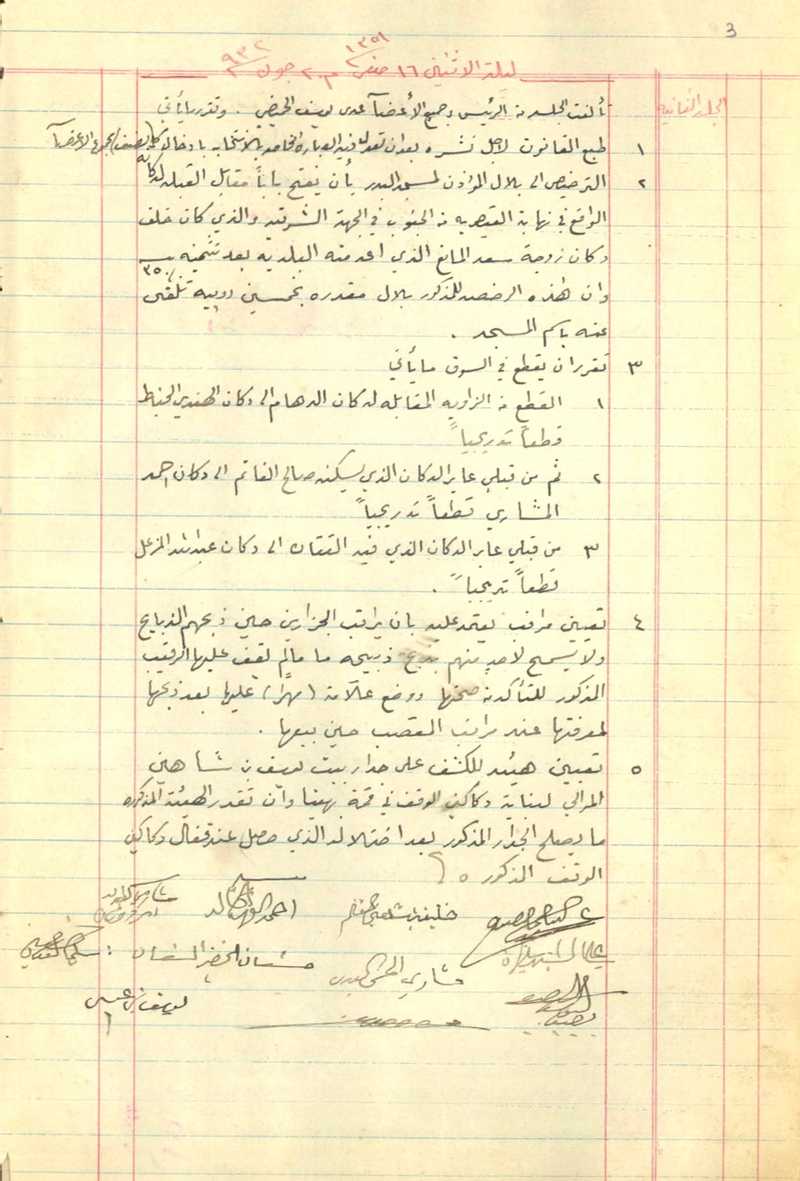 3
ليلة الاثنين ١٦ صفر ١٣٥١ م ٢٠ جون ٩٣٢
الجلسة الثانية
تألفت الجلسة من الرئيس وجميع الأعضآ عدى يوسف الحميضي. وتقرر ما يأتي
١ طبع القانون لاجل نشره بعد ان تعدل فيه العبارة الخاصة بالانتخاب بادخال كلمة (نصف) مجموع الاعضآ
٢ الترخيص الى بلال المؤذن لمسجد البدر بأن يفتح باباً مقابل القبلة لدكانه
الواقع في نهاية القيصرية من الجنوب في الجهة الشرقية والذي كان خلف
دكان زوجة سعد المانع الذي اخذته البلدية بعد تثمينه بـ ٣٥٠
وان هذه الرخصة للمذكور بلال مقدره بخمسين روبية تلقى
عنه باسم المسجد.
٣ تقرر ان يقطع في السوق ما يأتي
١ القطع من الزاوية المقابلة لدكان الدهام الى دكان الهندي الخياط
قطعاً تدريجياً
٢ ثم من قبلي عاير الدكان الذي يسكنه صالح الفاتم الى دكان احمد
المشاري قطعاً تدريجياً
٣ من قبلي عاير الدكان الذي فيه القفاف الى دكان عبدالله المزعل
قطعاً تدريجياً.
٤ تعيين مراقب يعتمد عليه بان يراقب الجزارين حين ذبحهم الذبايح
ولا يسمح لاحد منهم بذبح ذبيحه ما مالم يقف عليها الرقيب
المذكور للتأكد من صحتها ووضع علامة (مهراً) عليها بعد ذبحها
لمعرفتها عند مراقب المقصب حين بيعها.
٥ تعيين هيئة للكشف على جدار بيت يوسف بن شاهين
الموالي لبناية دكاكين الوقف في بهيتا وان تقدر الهيئة المذكوره
ما يصلح الجدار المذكور بعد اختلاله الذي حصل عند دكاكين
الوقف المذكور
مشاري الحسن البدر
مشعان الخضير المشعان
يوسف بن عيسى